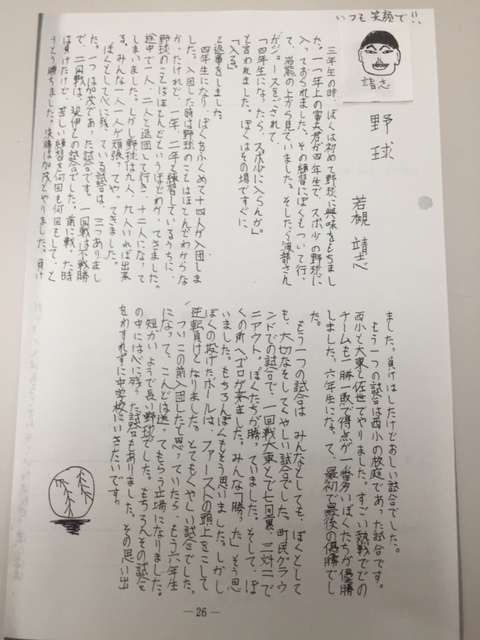 いつも笑顔で!!
野球
若槻 靖志
三年生の時、ぼくは初めて野球に興味をもちまし
た。一年上の富夫君が四年生で、スポ少の野球に
入っておられました。その練習にぼくもついて行っ
て、岩熊の上から見ていました。そしたら渡部さん
がジュースをござれて、
「四年生になったら、スポ少に入らんか。」
と言われました。ぼくはその場ですぐに、
「入る。」
と返事をしました。
四年生になり、ぼくをふくめて十四人が入団しま
した。入団した時は野球のことはほとんどわからな
かったけれど、一年、二年と練習しているうちに、
野球のことはほとんどというほどわかってきました。
途中で一人、二人と退団して行き、十二人になって
しまいました。しかし野球は九人、九人いれば出来
る。みんな一人一人が頑張ってやってきました。
ぼくとして心に残っている試合は、三つありまし
た。一つは加茂であった試合です。一回戦は不戦勝
で、二回戦は、斐伊との試合でした。前に戦った時
は負けたけど、苦しい練習を何回も何回もして、と
うとう勝ちました。決勝は加茂とやりました。負け
ました。負けはしたけどおしい試合でした。
もう一つの試合は西小の校庭であった試合です。
西小と大東と佐世でやりました。すごい熱戦でどの
チームも一勝一敗で得点が一番多いぼくたちが優勝
しました。六年生になって、最初で最後の優勝でし
た。
もう一つの試合は、みんなとしても、ぼくとして
も、大切なそしてくやしい試合でした。町民グラウ
ンドでの試合で、一回戦大東とで七回裏、三対二で
ニアウト。ぼくたちが勝っていました。そして、ぼ
くの所へゴロが来ました。みんな「勝った」そう思
いました。もちろんぼくもそう思いました。しかし
ぼくの投げたボールは、ファーストの頭上をこして
逆転負けとなりました。とてもくやしい試合でした。
ついこの前入団したと思っていたら、もう六年生
になって、こんどは送ってもらう立場になりました。
短かいようで長い野球でした。もちろんその試合
の中には心に残った試合もありました。その思い出
をわすれずに中学校にいきたいです。
— 26 —